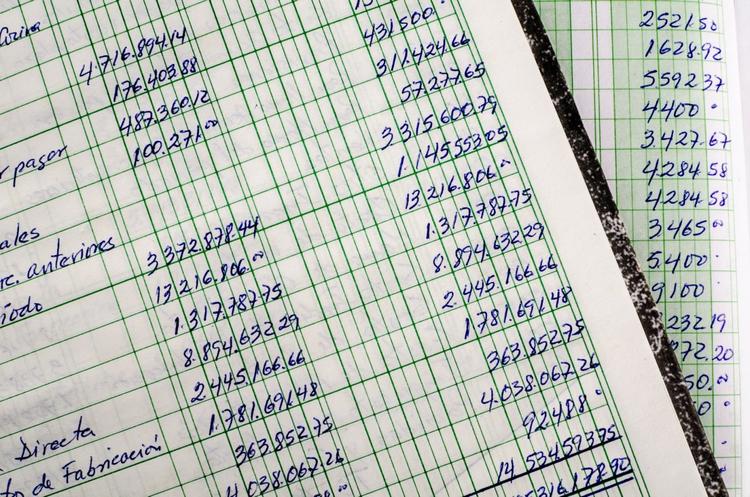 4.716.894.14
176.403.88
487.360.12
pagar 100.271.00
anteriores
3 372.878.44
13 216.806.00
1.317.787.75
8.894.632.29
2.445.166.66
1.781.691.48
Directa 363.852.75
de Fabricación 4 038.067.26
431500
311.424.66
57.277.65
3 315 600.79
1.145 553 05
13 216.806 00
1.317.787.75
8.894.632.29
2.445.166 66
1.781.691.48
363.852.75
4.038.067.26
92.488
14 534 593 75
316.178.90
2521.50
1628.92
5592 37
4400
3.427.67
4284.58
4284.58
3465 00
5.400
9100
232 19
972.20
50.00
0